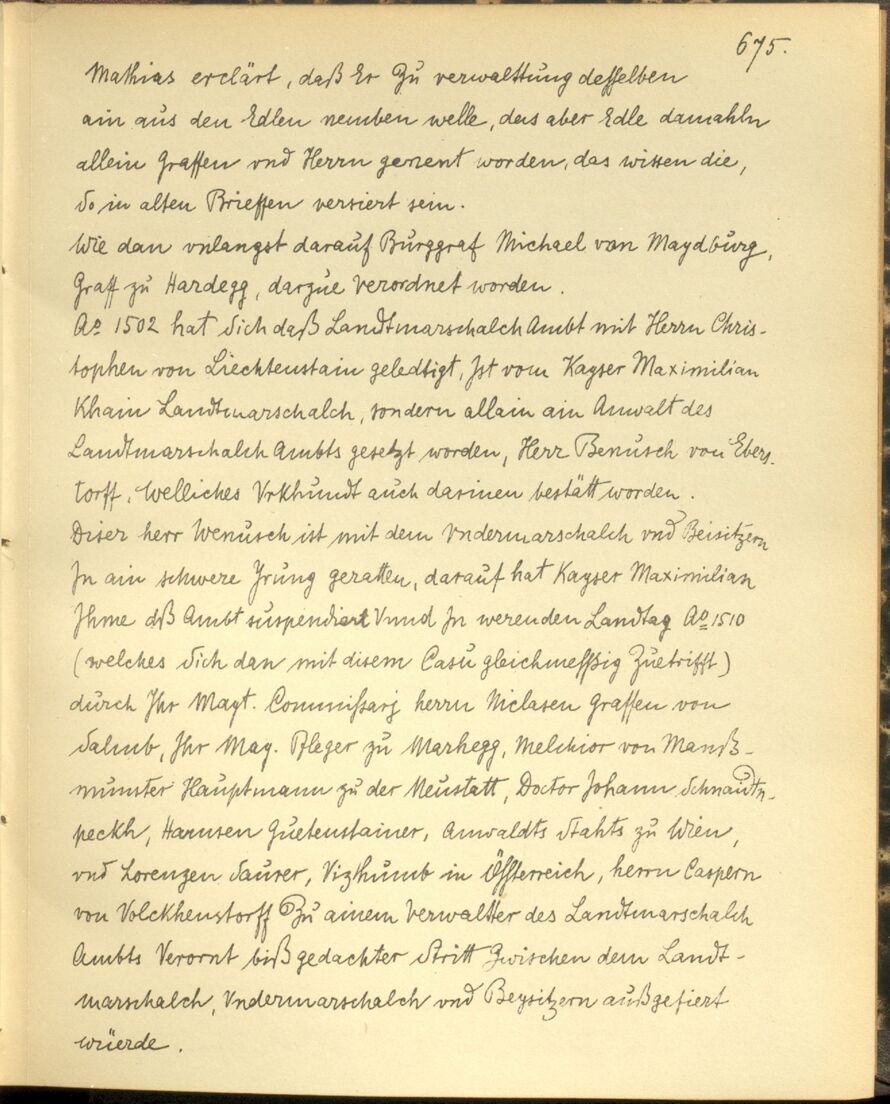 675.
Mathias erclärt, daß Er Zu verwalttung desselben
ain aus den Edlen nemben welle, das aber Edle damahln
allein Graffen vnd Herrn genent worden, das wissen die,
So in alten Brieffen versiert sein.
Wie dan vnlangst darauf Burggraf Michael von Maydburg,
Graff zu Hardegg, darzue Verordnet worden.
Aº 1502 hat Sich daß Landtmarschalch Ambt mit Herrn Chris-
tophen von Liechtenstain geledtigt, Ist vom Kayser Maximilian
Khain Landtmarschalch, sondern allain ain Anwalt des
Landtmarschalch Ambts gesetzt worden, Herr Benusch von Ebers-
torff, Welliches Vrkhundt auch darinen bestätt worden.
Diser herr Wenusch ist mit dem Vndermarschalch vnd Beisitzern
In ain schwere Irung geratten, darauf hat Kayser Maximilian
Ihme dß Ambt suspendiert Vnnd In werenden Landtag Aº 1510
(welches Sich dan mit disem Casu gleichmessig Zuetrifft)
durch Ihr Mayt. Commissarj herrn Niclasen Graffen von
Salmb, Ihr May. Pfleger zu Marhegg, Melchior von Manß-
munster Hauptmann zu der Neustatt, Doctor Johann Schnaidtn-
peckh, Hannsen Guetenstainer, Anwaldts Stahts zu Wien,
vnd Lorenzen Saurer, Vizthumb in Össterreich, herrn Caspern
von Volckhenstorff Zu ainem Verwaltter des Landtmarschalch
Ambts Verornt biß gedachter Stritt Zwischen dem Landt-
marschalch, Vndermarschalch vnd Beysitzern außgefiert
wüerde.